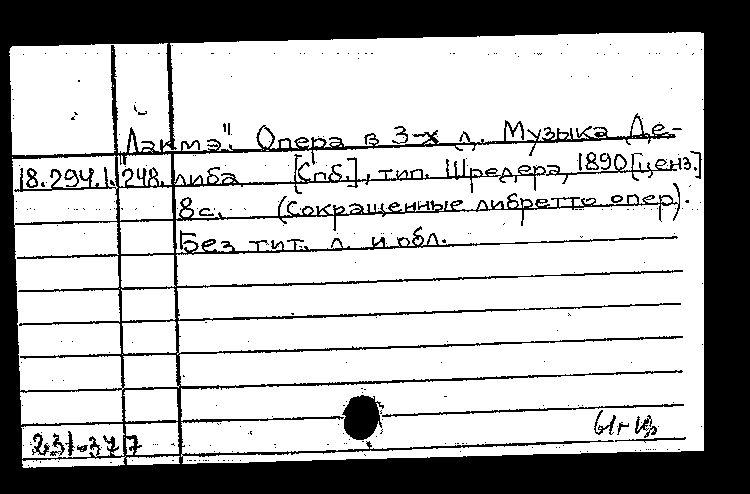 "Лакмэ". Опера в 3-х д. Музыка Де-
18.294.1.248. либа [Спб.], тип. Шредера, 1890 [ценз.]
8с. (Сокращенные либретто опер).
Без тит. л. и обл.
231-377